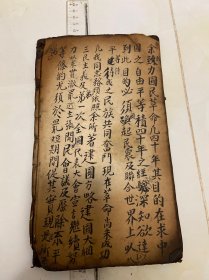 余致力國民革命凡四十年其目的在求中
國之自由平等積四十年之經驗深知欲達
到此目的必須喚起民衆及聯合世界上以
平等待我之民族共同奮鬥現在革命尚未成功
凡我同志務須依照余所著建國方略建國大綱
三民主義及第一次全國代表大會宣言繼續努
力以求貫澈最近主張開國民會議及廢除不平
等條約尤須於最短期間促其實現是所